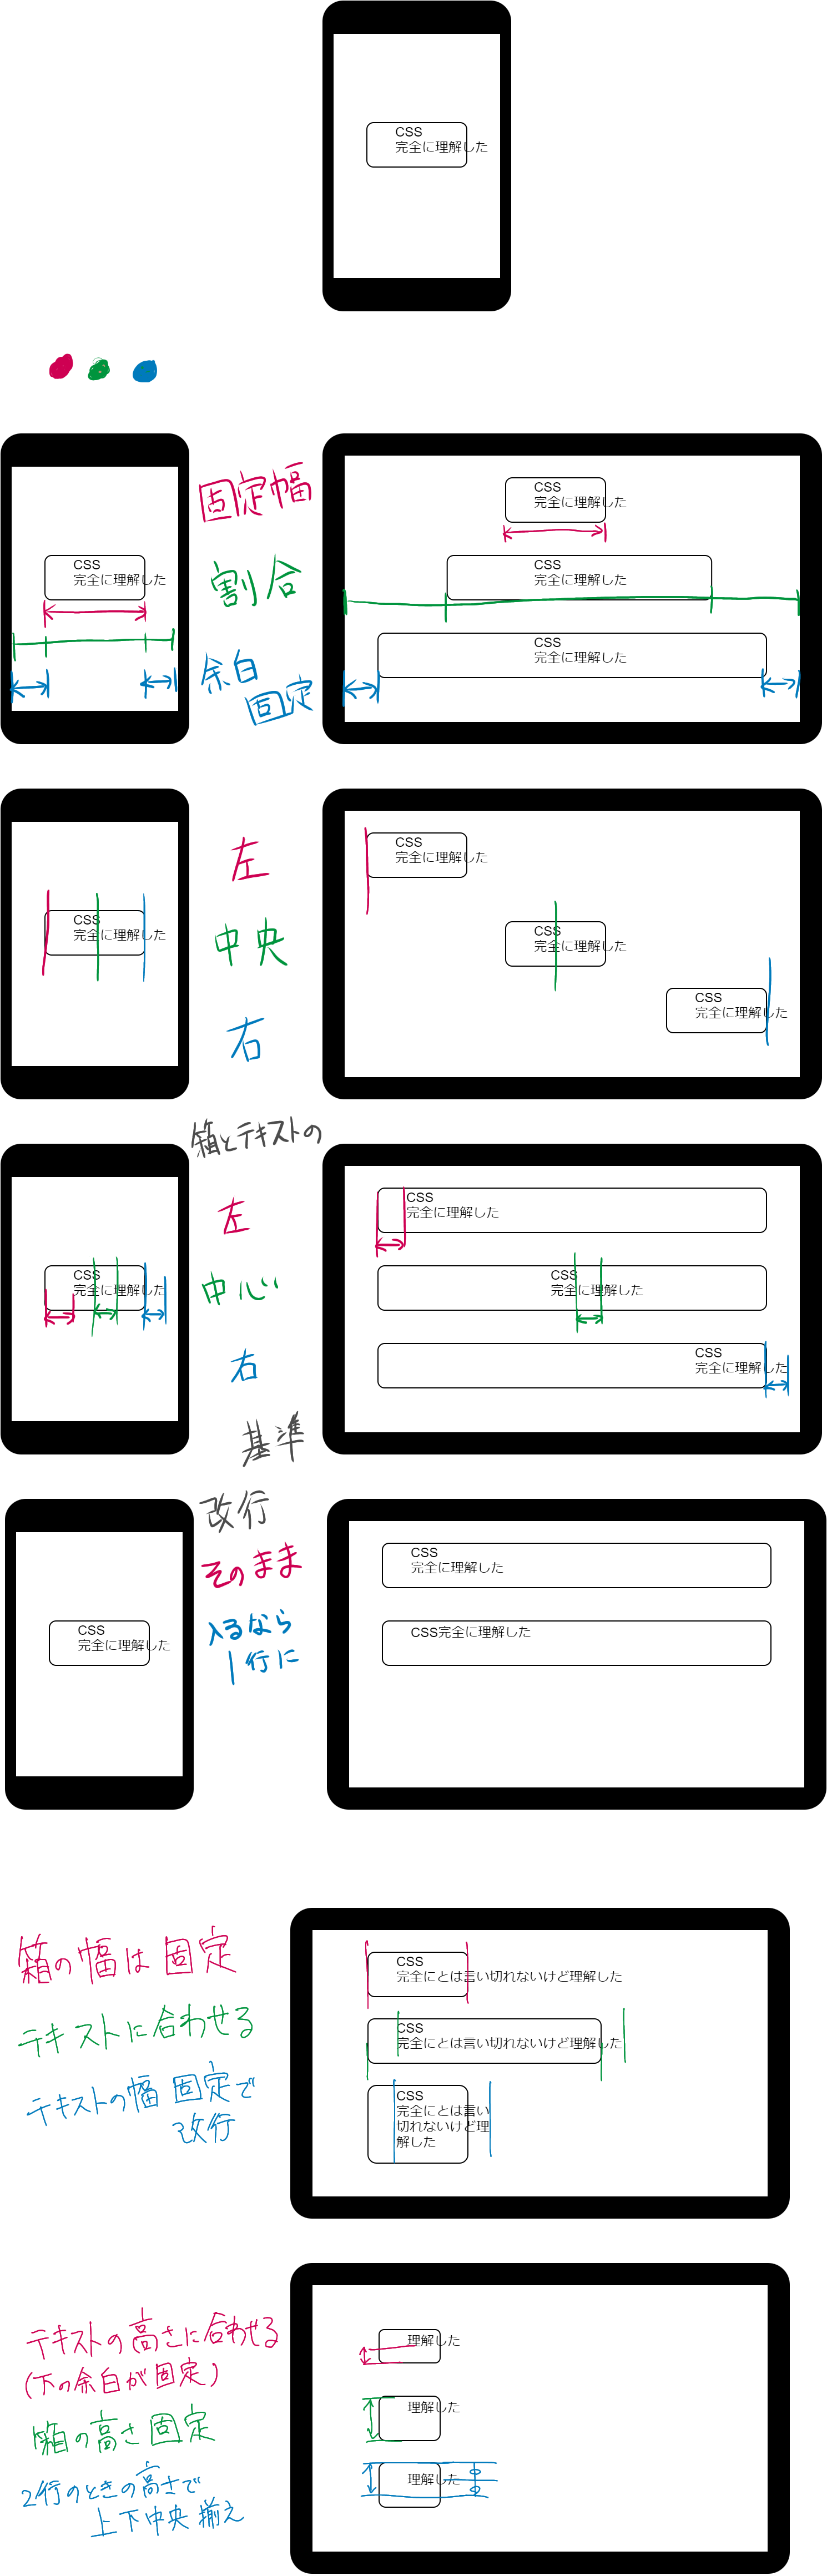 CSS
完全に理解した
固定幅
割合
余白
固定
CSS
完全に理解した
CSS
完全に理解した
CSS
完全に理解した
CSS
完全に理解した
左
中央
右
CSS
完全に理解した
CSS
完全に理解した
CSS
完全に理解した
CSS
完全に理解した
箱とテキストの
左
中心
右
基準
CSS
完全に理解した
CSS
完全に理解した
CSS
完全に理解した
CSS
完全に理解した
改行
そのまま
入るなら
1行に
CSS
完全に理解した
CSS
完全に理解した
CSS完全に理解した
箱の幅は固定
テキストに合わせる
テキストの幅 固定で
改行
CSS
完全にとは言い切れないけど理解した
CSS
完全にとは言い切れないけど理解した
CSS
完全にとは言い
切れないけど理
解した
テキストの高さに合わせる
(下の余白が固定)
箱の高さ固定
2行のときの高さで
上下中央揃え
理解した
理解した
理解した